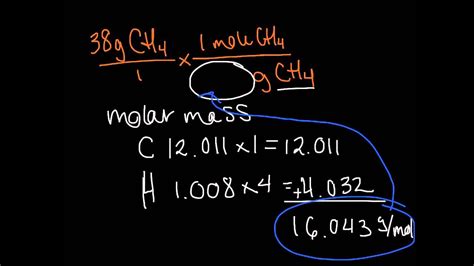 38g CH4 / 1 × 1 mole CH4 / g CH4
molar mass
C 12.011 × 1 = 12.011
H 1.008 × 4 = +4.032
16.043 g/mol